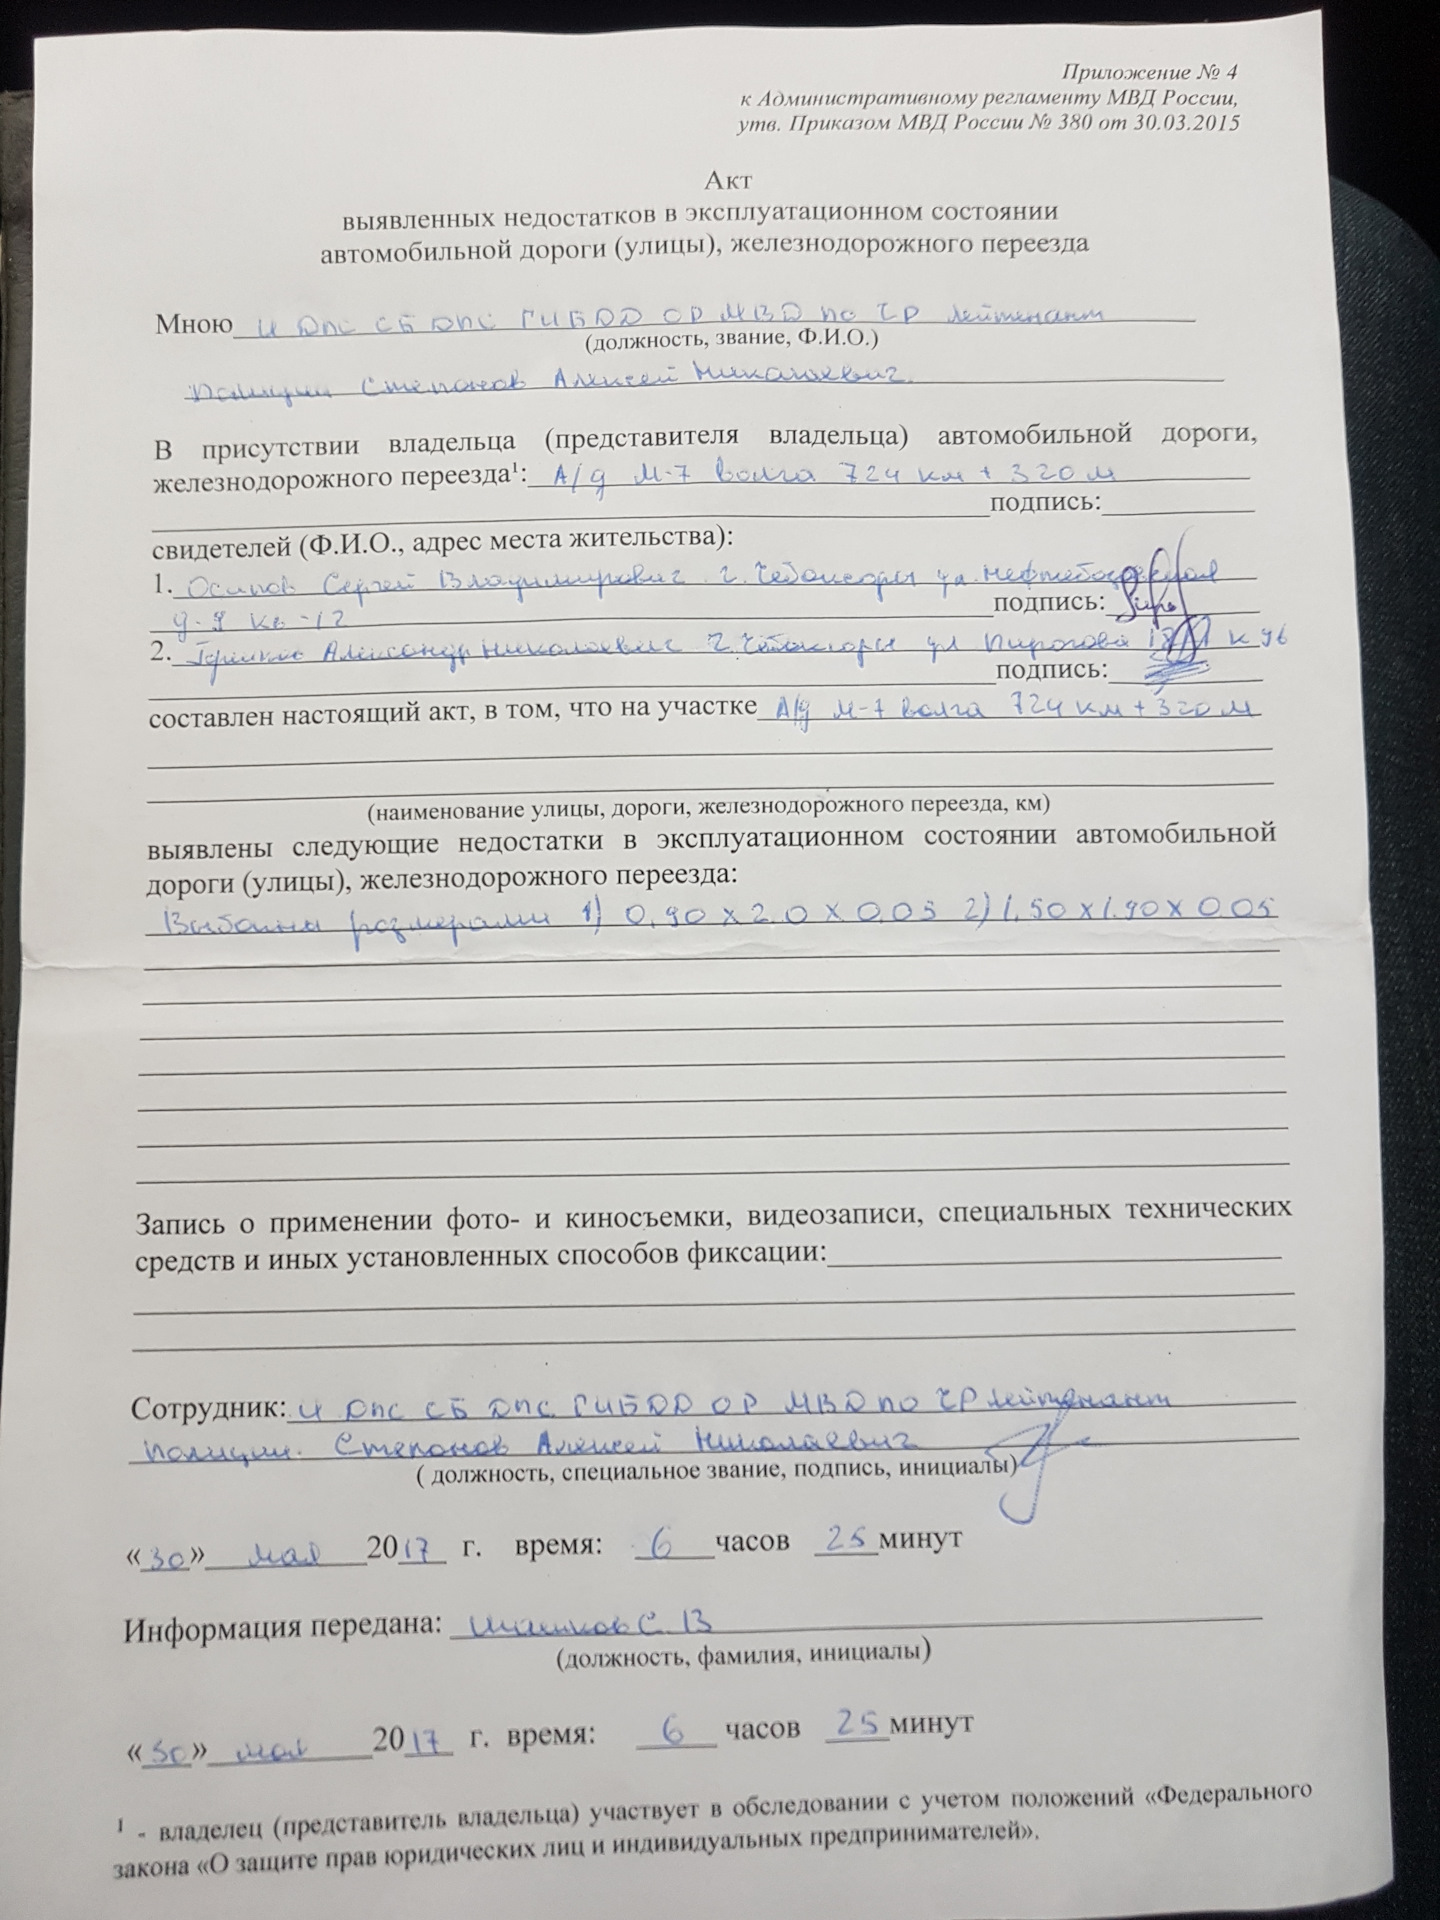 Приложение № 4
к Административному регламенту МВД России,
утв. Приказом МВД России № 380 от 30.03.2015
Акт
выявленных недостатков в эксплуатационном состоянии
автомобильной дороги (улицы), железнодорожного переезда
Мною И ДПС СБ ДПС ГИБДД ОР МВД по ЧР лейтенант
(должность, звание, Ф.И.О.)
полиции Степанов Алексей Николаевич.
В присутствии владельца (представителя владельца) автомобильной дороги,
железнодорожного переезда¹: А/д М-7 Волга 724 км + 320 м
подпись:
свидетелей (Ф.И.О., адрес места жительства):
1. Осипов Сергей Владимирович г. Чебоксары ул.
д-9 кв-12 подпись:
2. Александр Николаевич г. Чебоксары ул Пирогова
подпись:
составлен настоящий акт, в том, что на участке А/д М-7 Волга 724 км + 320 м
(наименование улицы, дороги, железнодорожного переезда, км)
выявлены следующие недостатки в эксплуатационном состоянии автомобильной
дороги (улицы), железнодорожного переезда:
Выбоины размерами 1) 0,90 х 2.0 х 0,05 2) 1,50 х 1.90 х 0,05
Запись о применении фото- и киносъемки, видеозаписи, специальных технических
средств и иных установленных способов фиксации:
Сотрудник: И ДПС СБ ДПС ГИБДД ОР МВД по ЧР лейтенант
полиции. Степанов Алексей Николаевич
( должность, специальное звание, подпись, инициалы)
«30» мая 2017 г. время: 6 часов 25 минут
Информация передана: С. В
(должность, фамилия, инициалы)
«30» мая 2017 г. время: 6 часов 25 минут
¹ - владелец (представитель владельца) участвует в обследовании с учетом положений «Федерального
закона «О защите прав юридических лиц и индивидуальных предпринимателей».